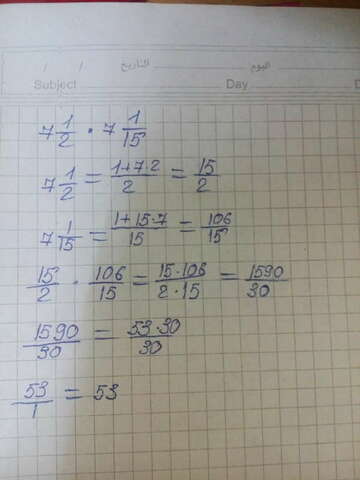 التاريخ / /
اليوم
Subject
Day
7 1/2 · 7 1/15
7 1/2 = (1+7·2)/2 = 15/2
7 1/15 = (1+15·7)/15 = 106/15
15/2 · 106/15 = (15·106)/(2·15) = 1590/30
1590/30 = (53·30)/30
53/1 = 53